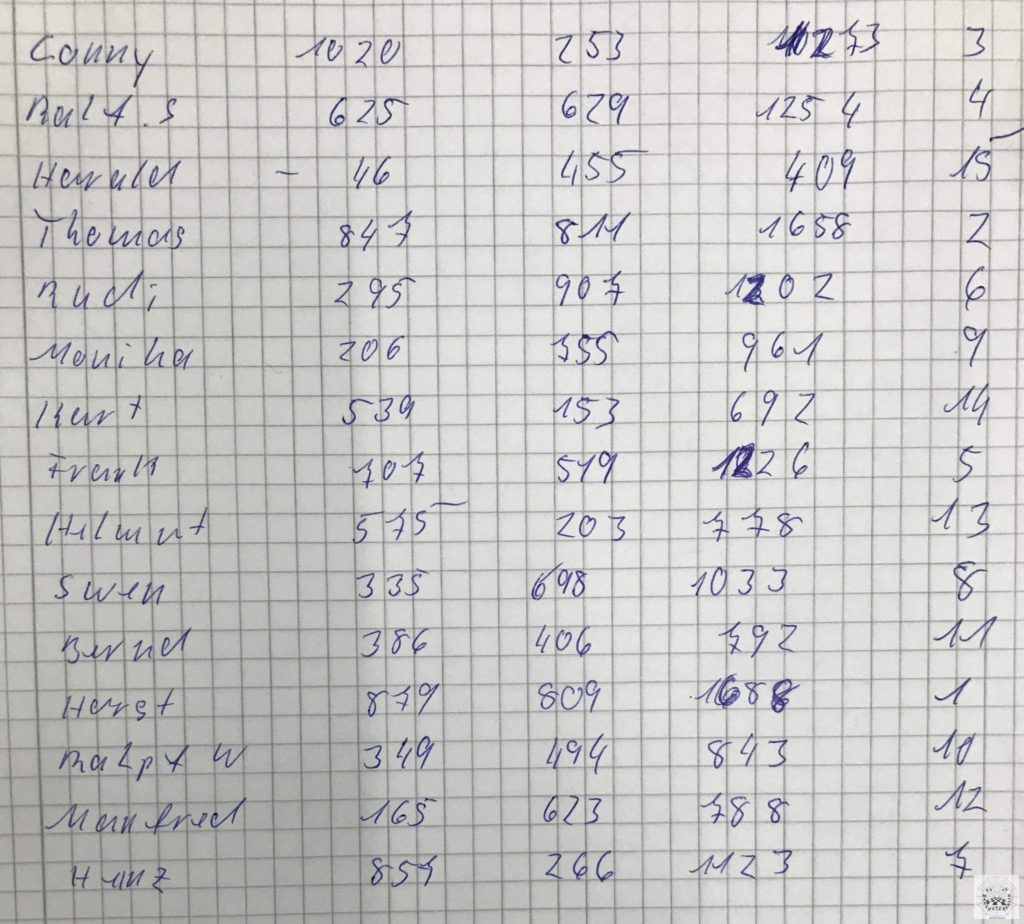 Conny 1020 253 1273 3
Ralf.S 625 629 1254 4
Harald - 46 455 409 15
Thomas 847 811 1658 2
Rudi 295 907 1202 6
Monika 206 755 961 9
Kurt 539 153 692 14
Frank 707 519 1226 5
Helmut 575 203 778 13
Swen 335 698 1033 8
Bernd 386 406 792 11
Horst 879 809 1688 1
Ralpf W 349 494 843 10
Manfred 165 623 788 12
Hanz 857 266 1123 7